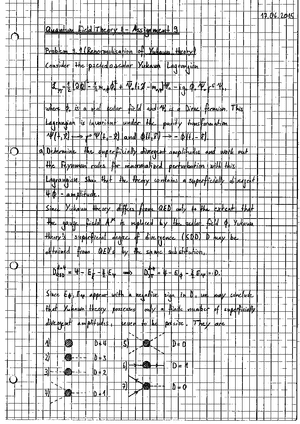 17.06.2015
Quantum Field Theory I - Assignment 9
Problem 9.1 (Renormalisation of Yukawa theory)
Consider the pseudoscalar Yukawa Lagrangian
where φ is a real scalar field and Ψ is a Dirac fermion. This
Lagrangian is invariant under the parity transformation
a) Determine the superficially divergent amplitudes and work out
the Feynman rules for renormalised perturbation with this
Lagrangian. Show that the theory contains a superficially divergent
4φ-amplitude.
Since Yukawa theory differs from QED only to the extent that
the gauge field is replaced by the scalar field φ, Yukawa
theory's superficial degree of divergence (SOD) D may be
obtained from QED's by the same substitution.
appear with a negative sign in D, we may conclude
that Yukawa theory possesses only a finite number of superficially
divergent amplitudes, seven to be precise. They are
1) D=4 5) D=0
2) D=3
6) D=1
3) D=2
7) D=0
4) D=1